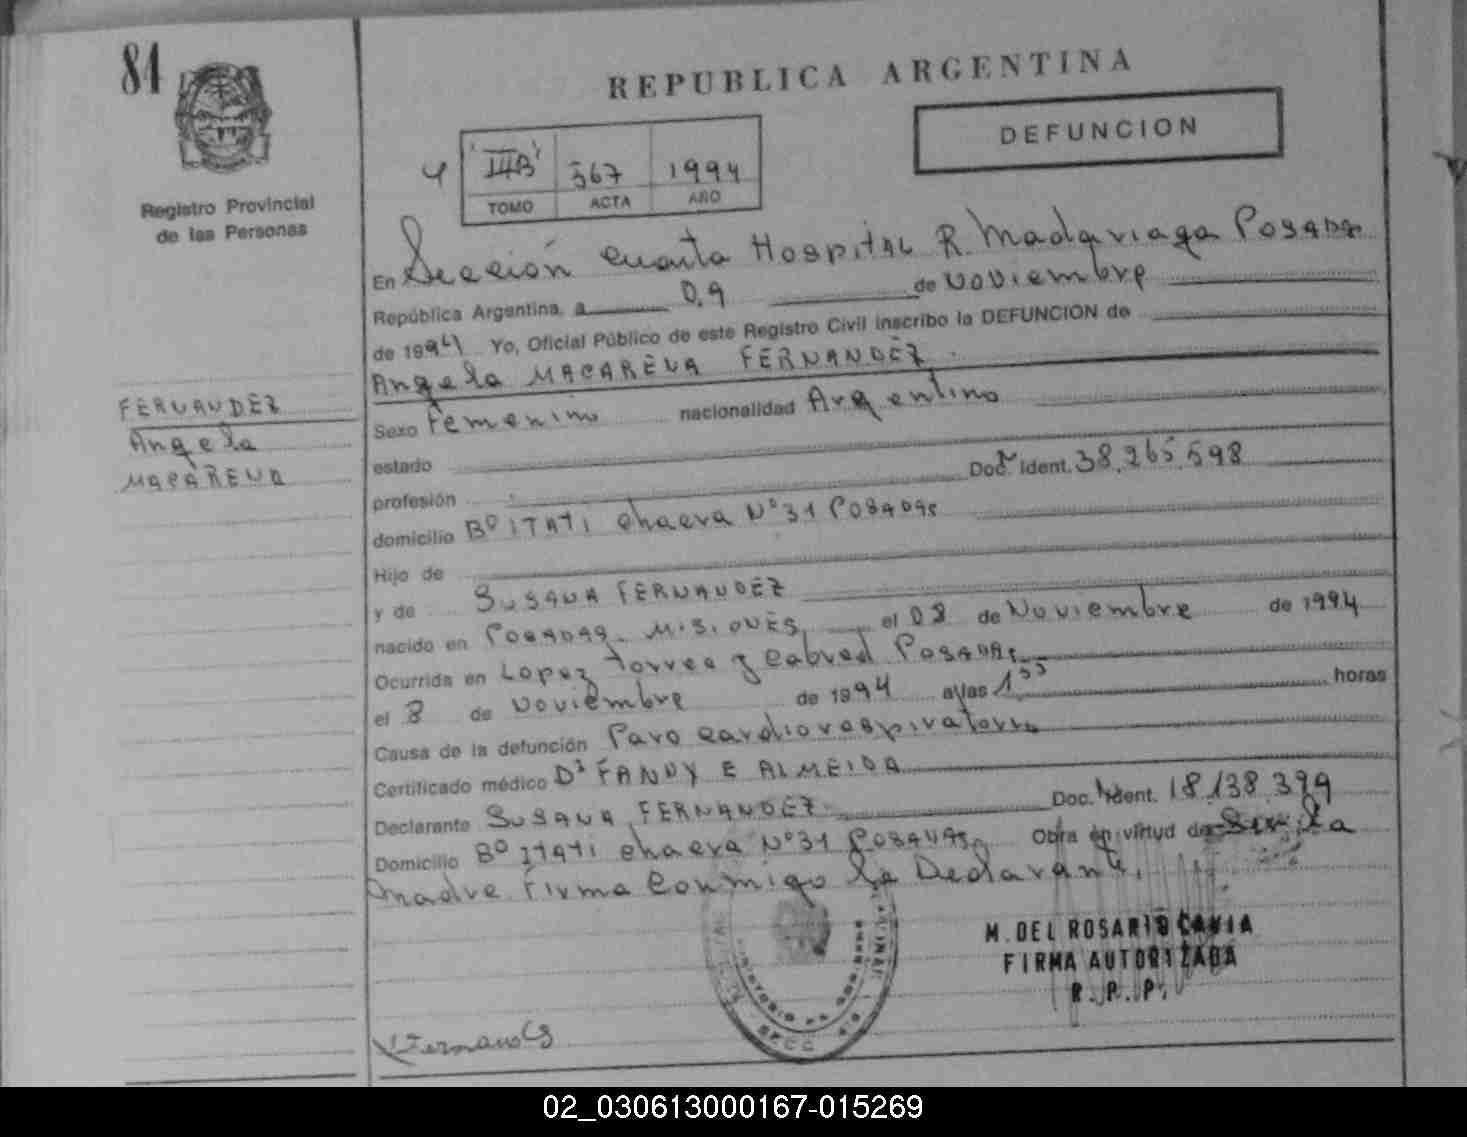 84
REPUBLICA ARGENTINA
DEFUNCION
4
IIIB 567 1994
TOMO ACTA AÑO
Registro Provincial
de las Personas
En Sección cuarta Hospital R. Madariaga Posadas
República Argentina, a 09 de Noviembre
de 1994 Yo, Oficial Público de este Registro Civil inscribo la DEFUNCION de
Angela MACARENA FERNANDEZ
FERNANDEZ
Angela
MACARENA
Sexo Femenino nacionalidad Argentino
estado
profesión Doc. Ident. 38.265.598
domicilio Bº ITATI chacra Nº 31 POSADAS
Hijo de
y de SUSANA FERNANDEZ
nacido en POSADAS - MISIONES el 08 de Noviembre de 1994
Ocurrida en Lopez torres y Cabred Posadas
el 8 de Noviembre de 1994 a las 1 55 horas
Causa de la defunción Paro cardiorespiratorio
Certificado médico Dª FANNY E ALMEIDA
Declarante SUSANA FERNANDEZ Doc. Ident. 18.138.399
Domicilio Bº ITATI chacra Nº 31 POSADAS Obra en virtud de Ser la
madre firma Conmigo la Declarante,
M. DEL ROSARIO CAVIA
FIRMA AUTORIZADA
R. P. P.
SECC
Fernandez
02_030613000167-015269